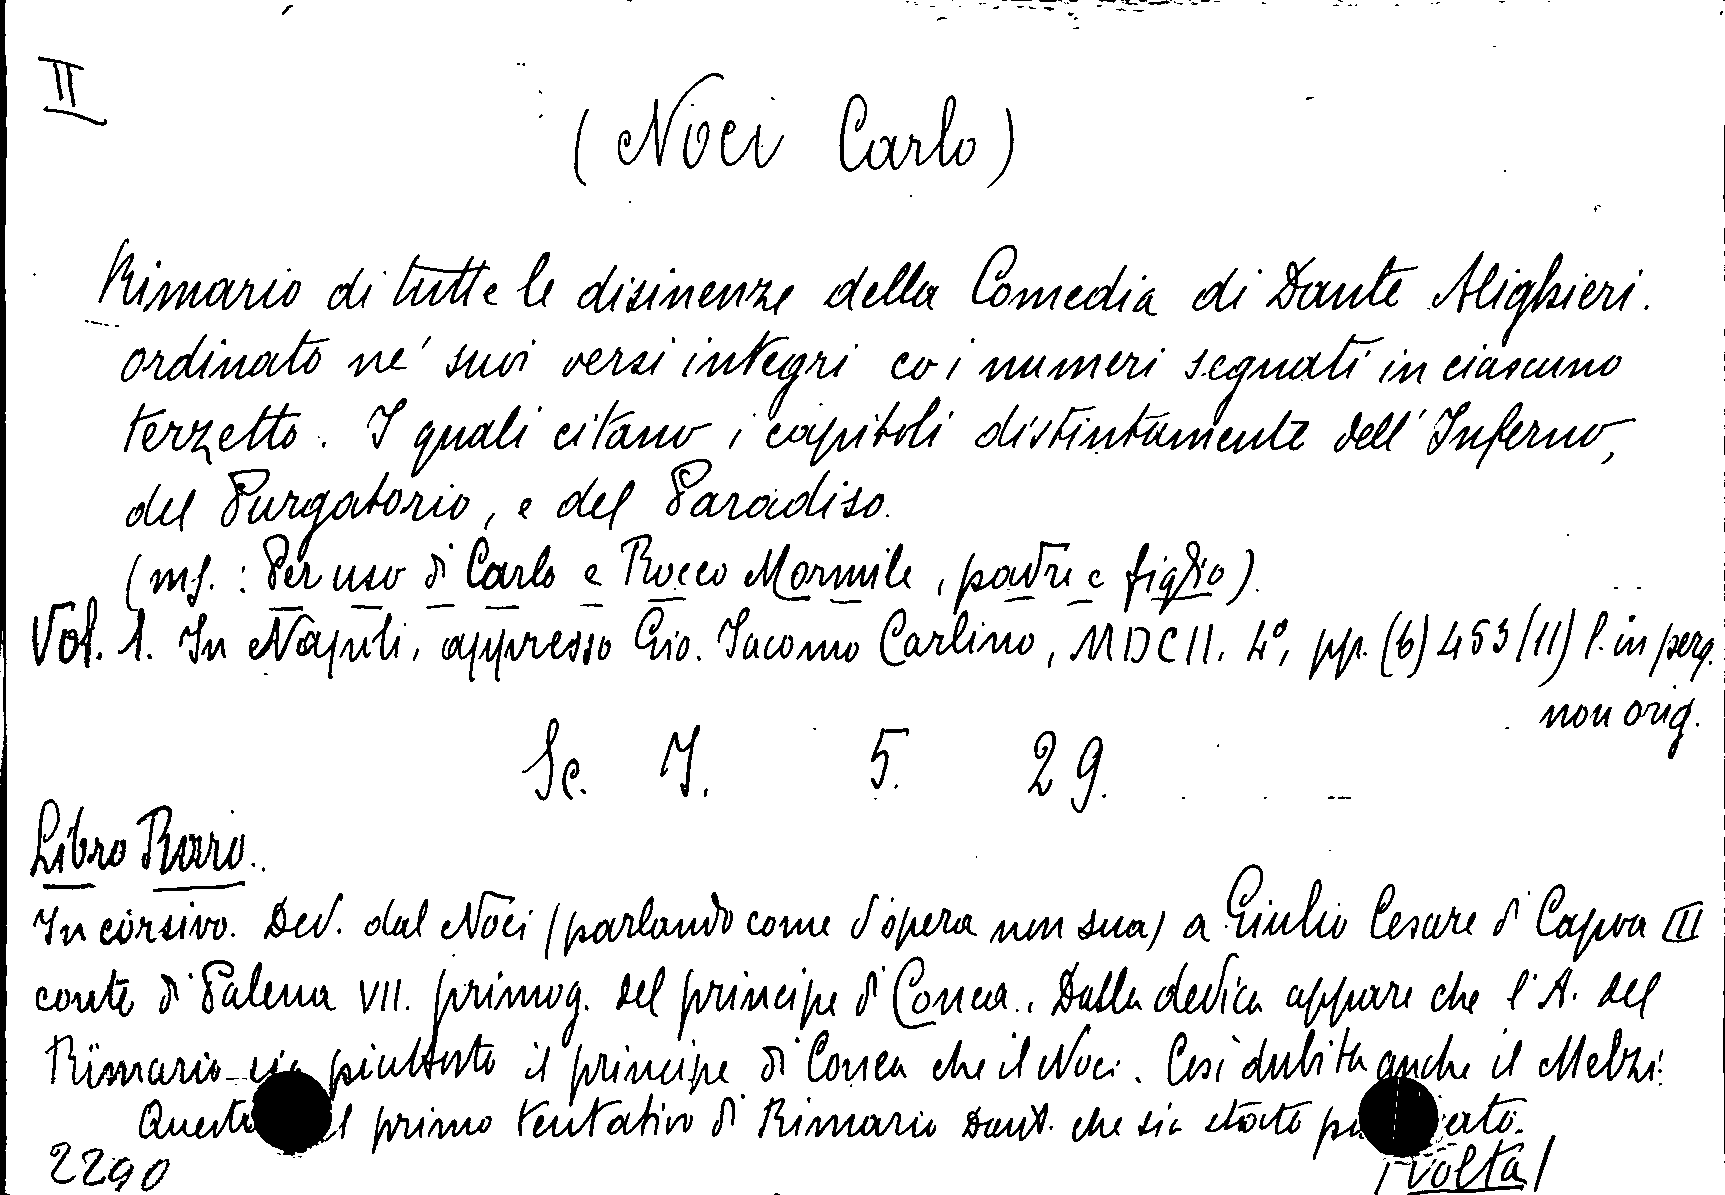 II
(Noci Carlo)
Rimario di tutte le disinenze della Comedia di Dante Alighieri.
ordinato ne' suoi versi integri co i numeri segnati in ciascuno
terzetto. I quali citano i capitoli distintamente dell'Inferno,
del Purgatorio, e del Paradiso.
(ms. : Per uso di Carlo e Rocco Mormile, padre e figlio).
Vol. 1. In Napoli, appresso Gio. Iacomo Carlino, MDCII. 4°, pp. (6) 453 (11) l. in perg.
non orig.
Sc. I. 5. 29.
Libro Raro.
In corsivo. Ded. dal Noci (parlando come d'opera non sua) a Giulio Cesare di Capoa III
conte di Palena VII. primog. del principe di Conca. Dalla dedica appare che l'A. del
Rimario sia piuttosto il principe di Conca che il Noci. Così dubita anche il Melzi.
Questo il primo tentativo di Rimario Dant. che sia stato
2290 (volta)